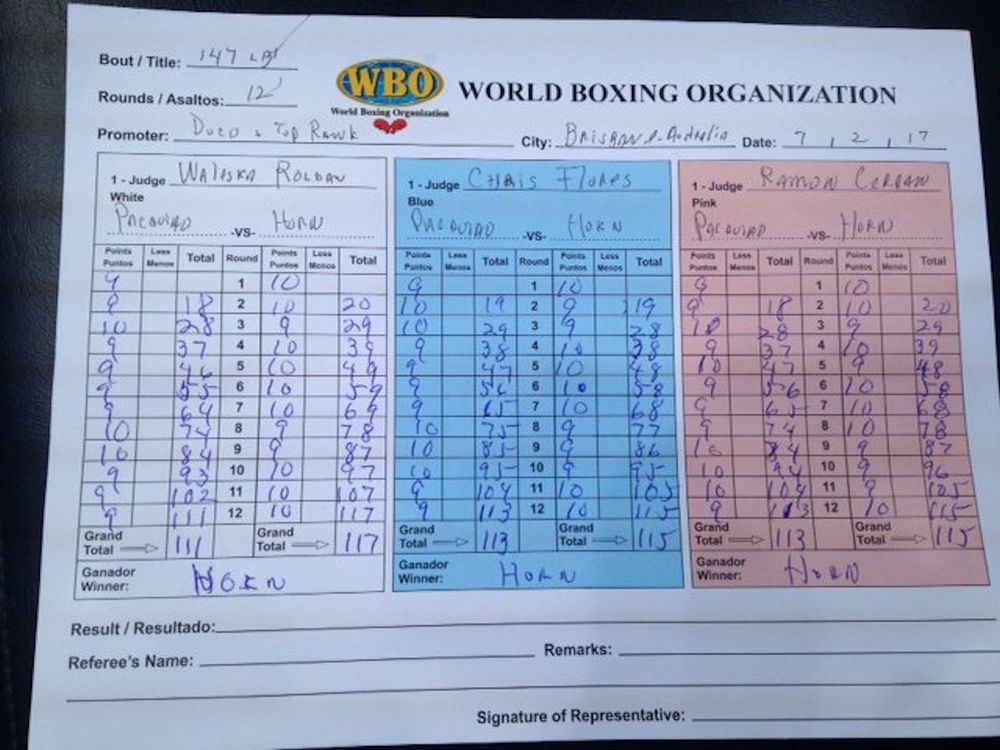 Bout / Title: 147 LBS
Rounds / Asaltos: 12
WBO
World Boxing Organization
WORLD BOXING ORGANIZATION
Promoter: Duco & Top Rank City: BRISBANE, Australia Date: 7 , 2 , 17
1 - Judge WALESKA ROLDAN 1 - Judge CHRIS Flores 1 - Judge RAMON CERDAN
White Blue Pink
PACQUIAO -VS- HORN PACQUIAO -VS- HORN PACQUIAO -VS- HORN
Points Less Total Round Points Less Total Points Less Total Round Points Less Total Points Less Total Round Points Less Total
Puntos Menos Puntos Menos Puntos Menos Puntos Menos Puntos Menos Puntos Menos
9 1 10 9 1 10 9 1 10
9 18 2 10 20 10 19 2 9 19 9 18 2 10 20
10 28 3 9 29 10 29 3 9 28 10 28 3 9 29
9 37 4 10 39 9 38 4 10 38 9 37 4 10 39
9 46 5 10 49 9 47 5 10 48 10 47 5 9 48
9 55 6 10 59 9 56 6 10 58 9 56 6 10 58
9 64 7 10 69 9 65 7 10 68 9 65 7 10 68
10 74 8 9 78 10 75 8 9 77 9 74 8 10 78
10 84 9 9 87 10 85 9 9 86 10 84 9 9 87
9 93 10 10 97 10 95 10 9 95 10 94 10 9 96
9 102 11 10 107 9 104 11 10 105 10 104 11 9 105
9 111 12 10 117 9 113 12 10 115 9 113 12 10 115
Grand Total 111 Grand Total 117 Grand Total 113 Grand Total 115 Grand Total 113 Grand Total 115
Ganador Winner: HORN Ganador Winner: HORN Ganador Winner: HORN
Result / Resultado:
Referee's Name: Remarks:
Signature of Representative: